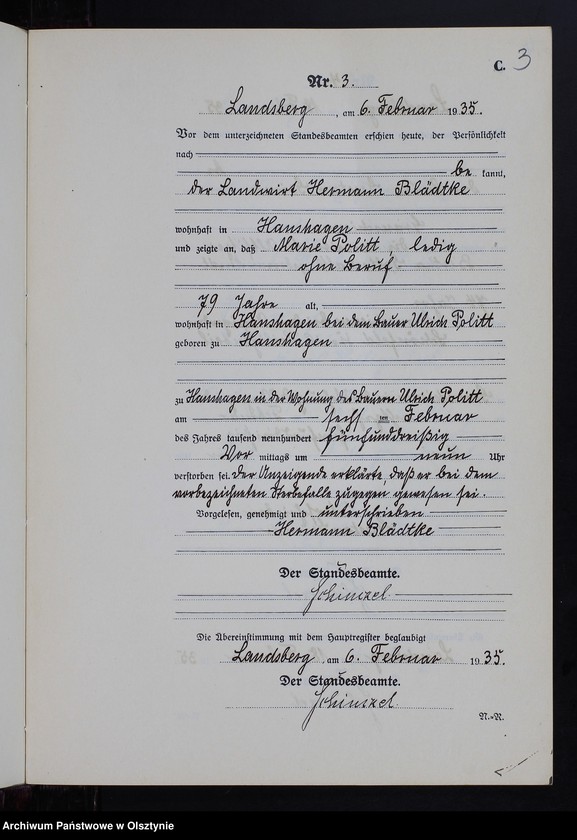 C. 3
Nr. 3.
Landsberg, am 6. Februar 1935.
Vor dem unterzeichneten Standesbeamten erschien heute, der Persönlichkeit
nach
be kannt,
der Landwirt Hermann Blädtke
wohnhaft in Hanshagen
und zeigte an, daß Marie Politt, ledig
ohne Beruf
79 Jahre alt,
wohnhaft in Hanshagen bei dem Bauer Ulrich Politt
geboren zu Hanshagen
zu Hanshagen in der Wohnung des Bauern Ulrich Politt
am sechsten Februar
des Jahres tausend neunhundert fünfunddreißig
Vor mittags um neun Uhr
verstorben sei. Der Anzeigende erklärte, daß er bei dem
vorbezeichneten Sterbefalle zugegen gewesen sei.
Vorgelesen, genehmigt und unterschrieben
Hermann Blädtke
Der Standesbeamte.
Schinzel
Die Übereinstimmung mit dem Hauptregister beglaubigt
Landsberg, am 6. Februar 1935.
Der Standesbeamte.
Schinzel
N.-R.
Archiwum Państwowe w Olsztynie